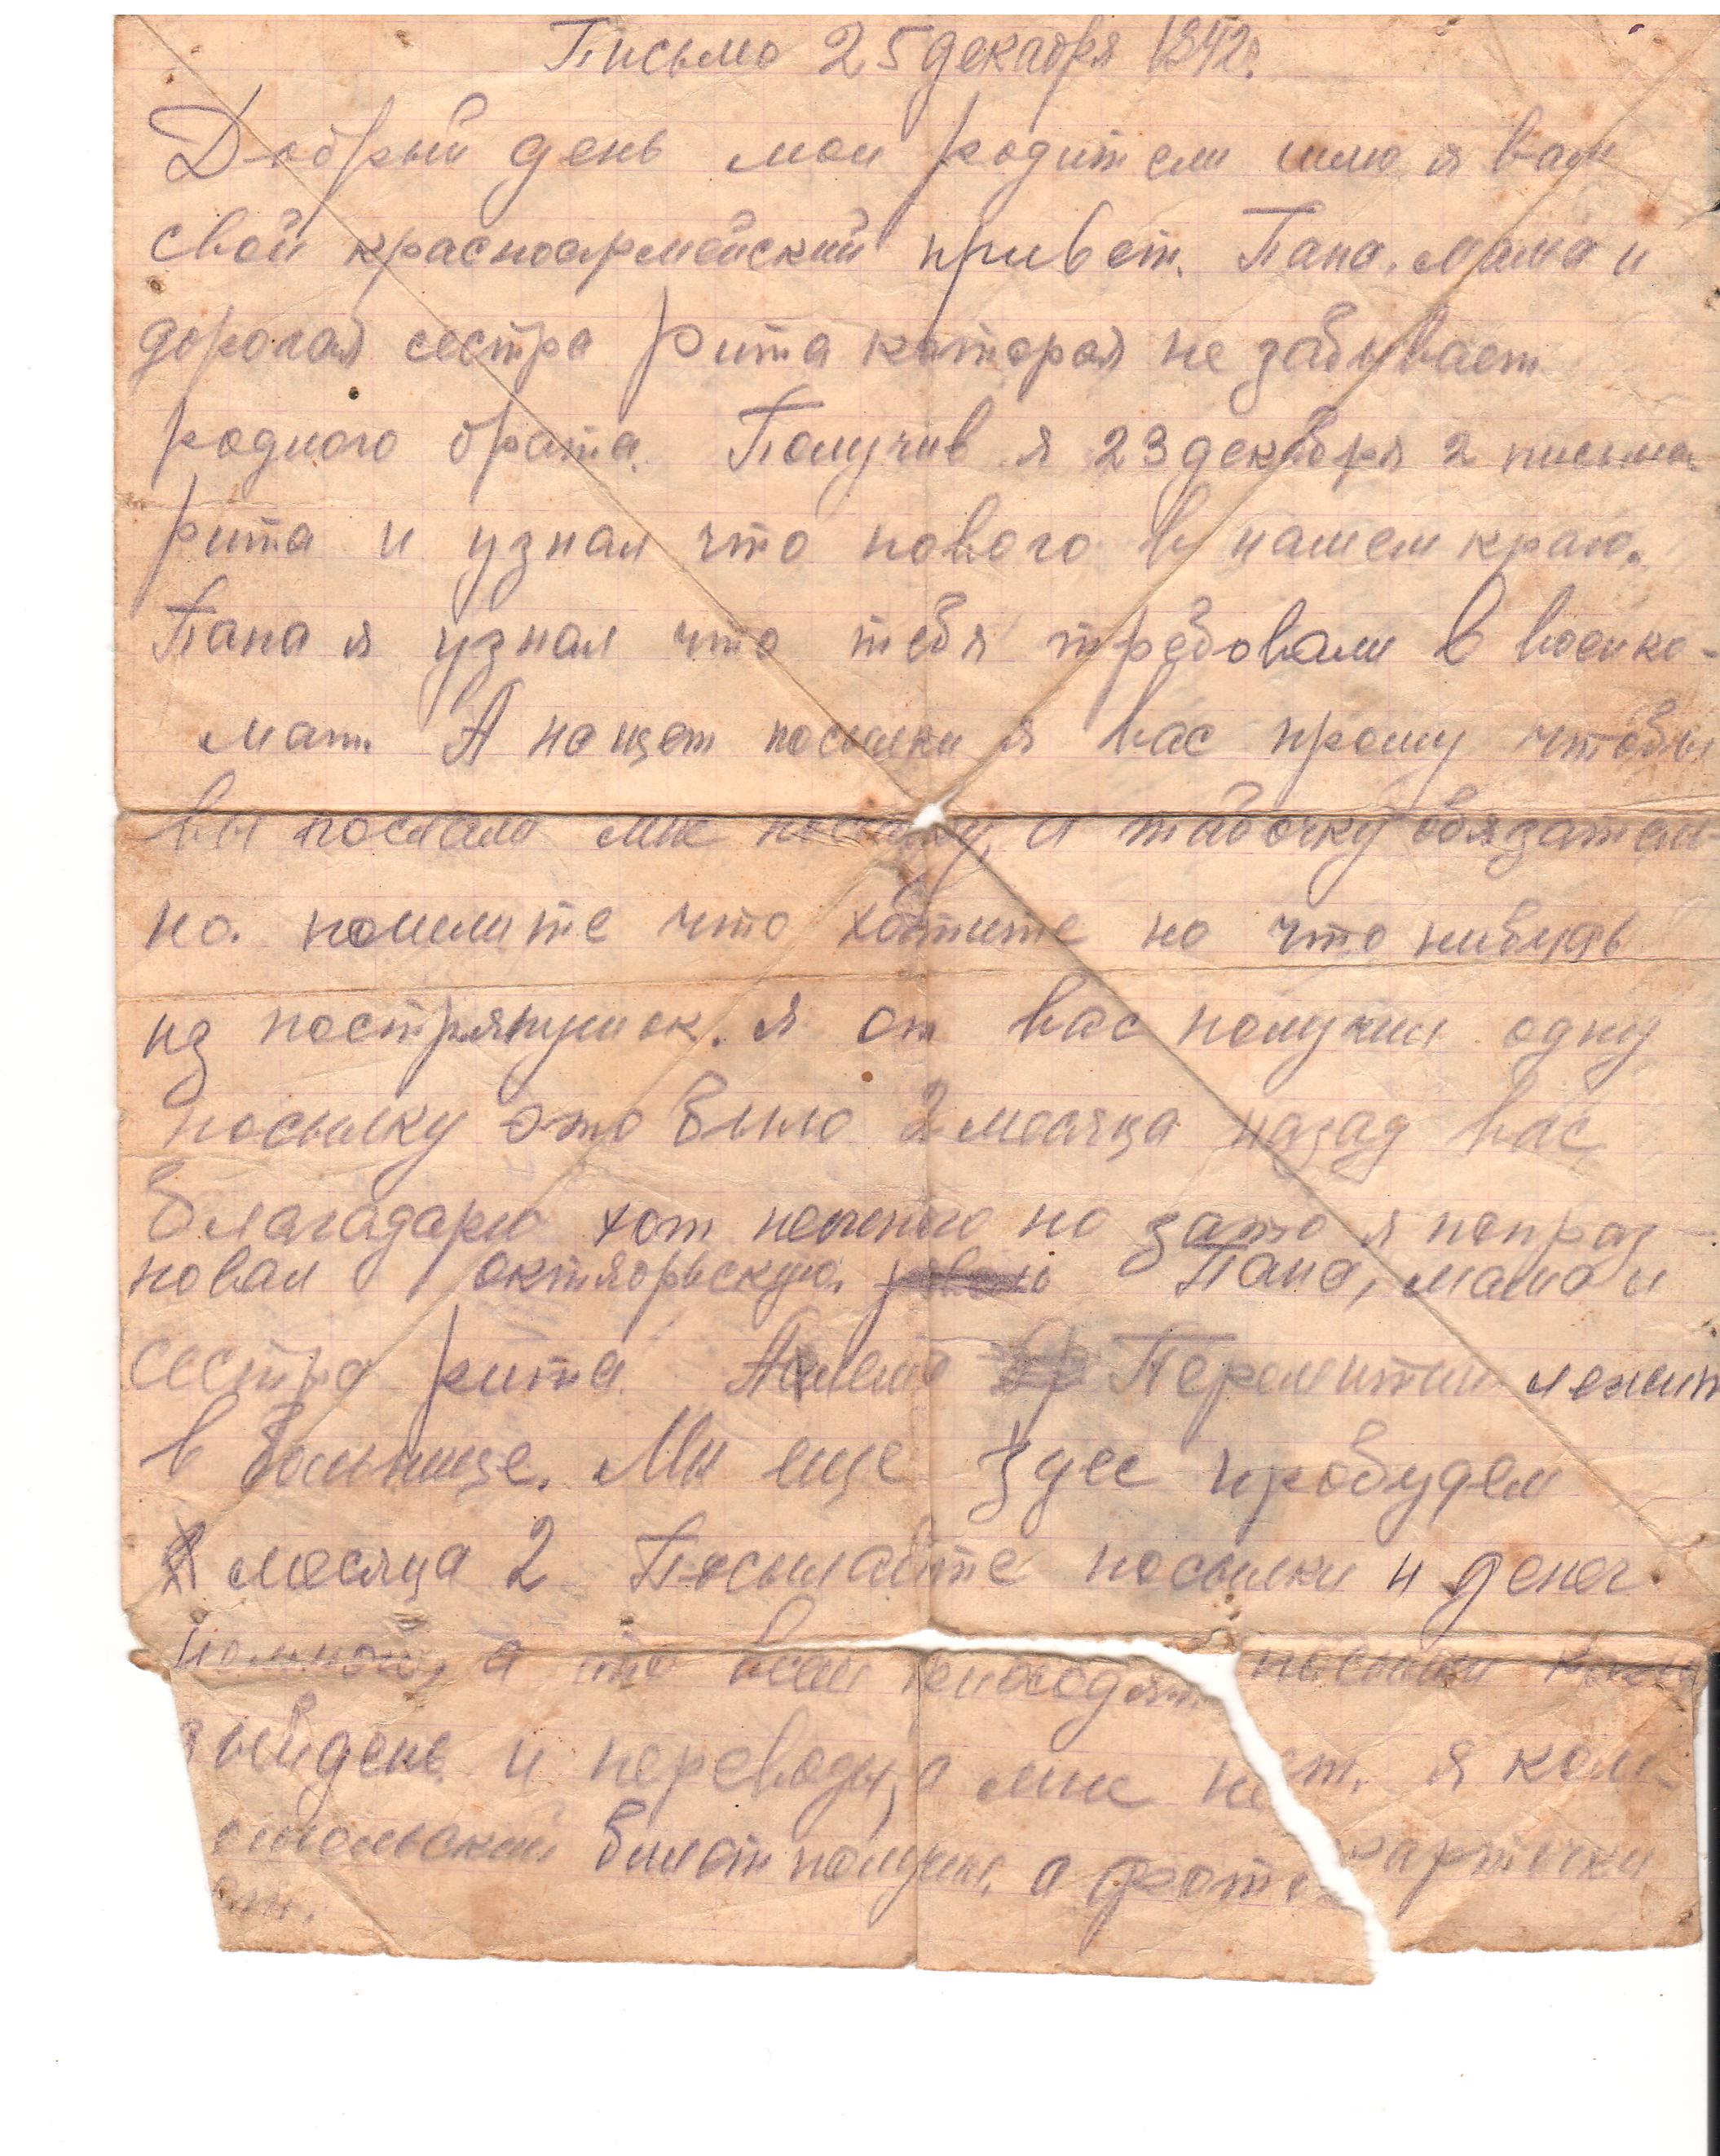 Письмо 25 декабря 1942г.
Добрый день мои родители шлю я вам
свой красноармейский привет. Папа, мама и
дорогая сестра Рита каторая не забывает
родного брата. Получив я 23 декабря 2 письма
Рита и узнал что нового в нашем краю.
Папа я узнал что тебя требовали в военко-
мат. А нащет посылки я вас прошу чтобы
вы послали мне посылку, и табочку обязатель
но. пошлите что хотите но что нибудь
из пострянушек. Я от вас получил одну
посылку это было 2 месяца назад вас
благадарю хот немного но зато я попраз-
новал октябрьскую. Папа, мама и
сестра Рита. Перемитин лежит
в больнице. Мы еще здес пробудем
месяца 2 Посылайте посылки и денег
немного, а то всем приходят посылки каж
дый день и переводы, а мне нет. Я ком-
сомольский билет получил, а фото карточки